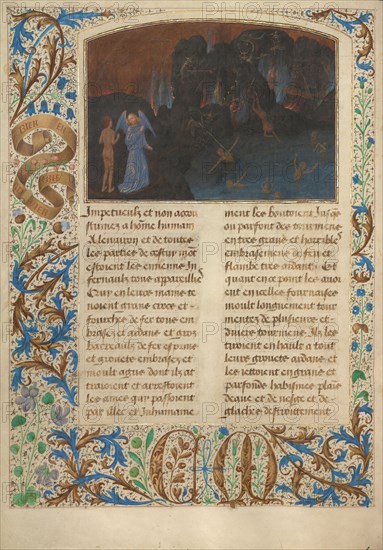 Impetueulx et non accou
stumez a home humain
A lenuiron et de toutes
les parties de cestuy mont
estoient les ennemis In
fernaulx tous appareilliez
Car en leurs mains te
noient grans crocz et
fourches de fer tous em
brasez et ardans et gros
barreaulx de fer
et grauetz embrasez et
moult agus dont ilz at
tiroient et arrestoient
les ames qui passoient
par illec et Inhumaine
ment les boutoient Jusques
ou parfont des tourmens
entre grans et horribles
embrasemens de feu et
flambe tres ardant. Et
quant en ce point les auoi
ent en celles fournaises
moult longuement tour
mentez de plusieurs et
diuers tourmens Ilz les
tiroient en hault a tout
leurs grauetz ardans et
les iettoient en grans et
parfondes habismes plains
deaue et de neige et de
glaches destroitement
C M